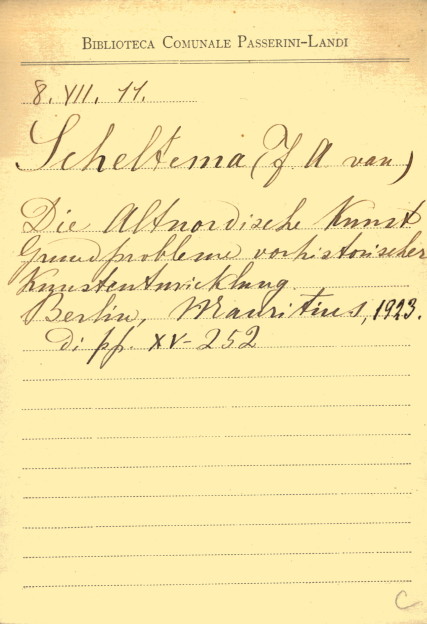 BIBLIOTECA COMUNALE PASSERINI-LANDI
8. VII. 11.
Scheltema (F. A van)
Die Altnordische Kunst
Grundprobleme vorhistorischer
Kunstentwicklung.
Berlin, Mauritius, 1923.
di pp. XV-252
C